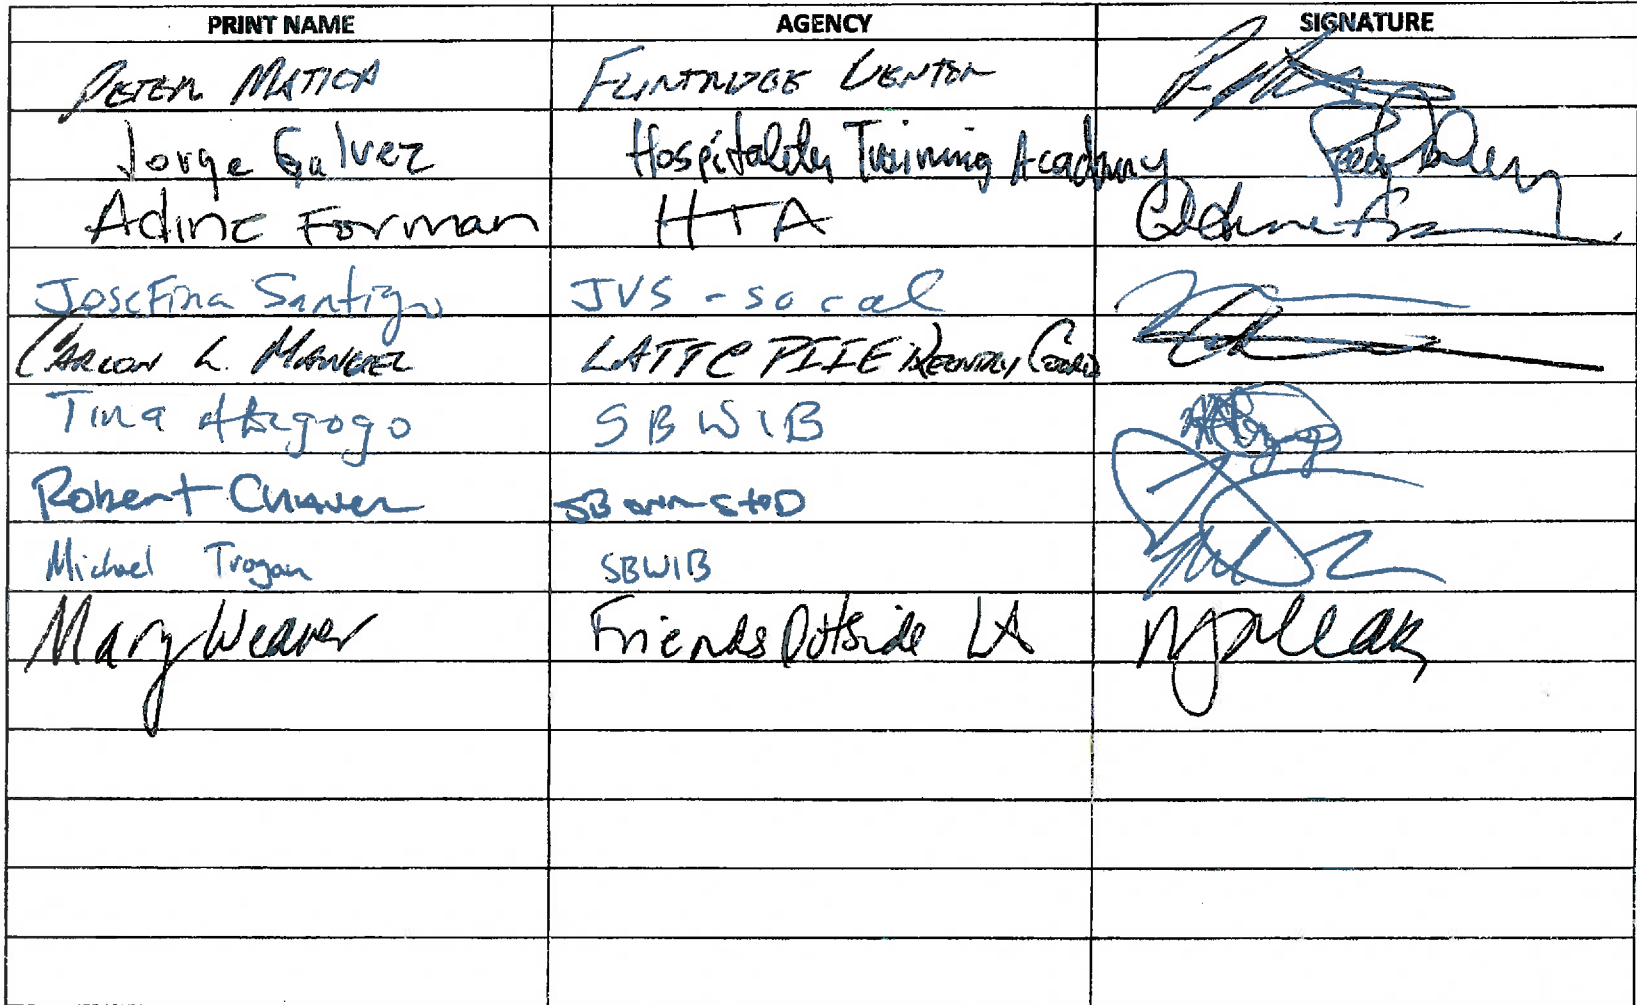 PRINT NAME AGENCY SIGNATURE
PETER MATICA FLINTRIDGE CENTER
Jorge Galvez Hospitality Training Academy
Adine Forman HTA
Josefina Santigo JVS - socal
CARLON L. MANUEL LATTC PIIE REENTRY COORD
Tina SBWIB
Robert Chaver SB
Michael Trogan SBWIB
Mary Weaver Friends Outside LA